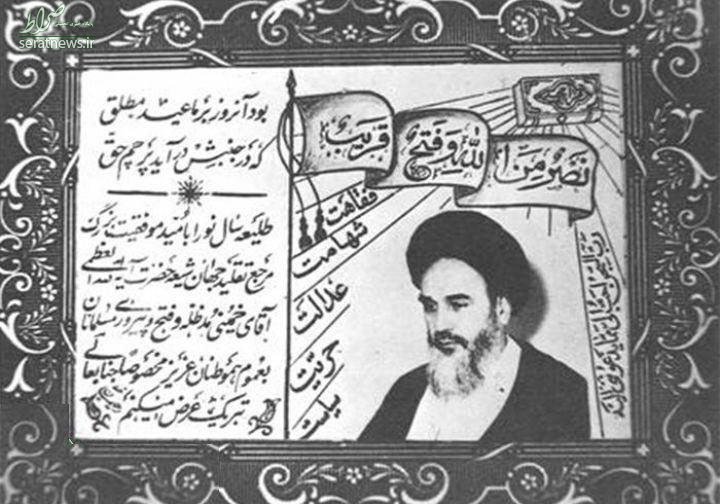 صراط
seratnews.ir
بود آنروز بر ما عید مطلق
که در جنبش درآید پرچم حق
نصر من الله و فتح قریب
قرآن
طلیعه سال نو را بامید موفقیت بزرگ
مرجع تقلید جهان شیعه حضرت آیت الله العظمی
آقای خمینی مد ظله و فتح و پیروزی مسلمانان
بعموم هموطنان عزیز مخصوصا جنابعالی
تبریک عرض میکنم
فقاهت
شهامت
عدالت
مرجعیت
سیاست